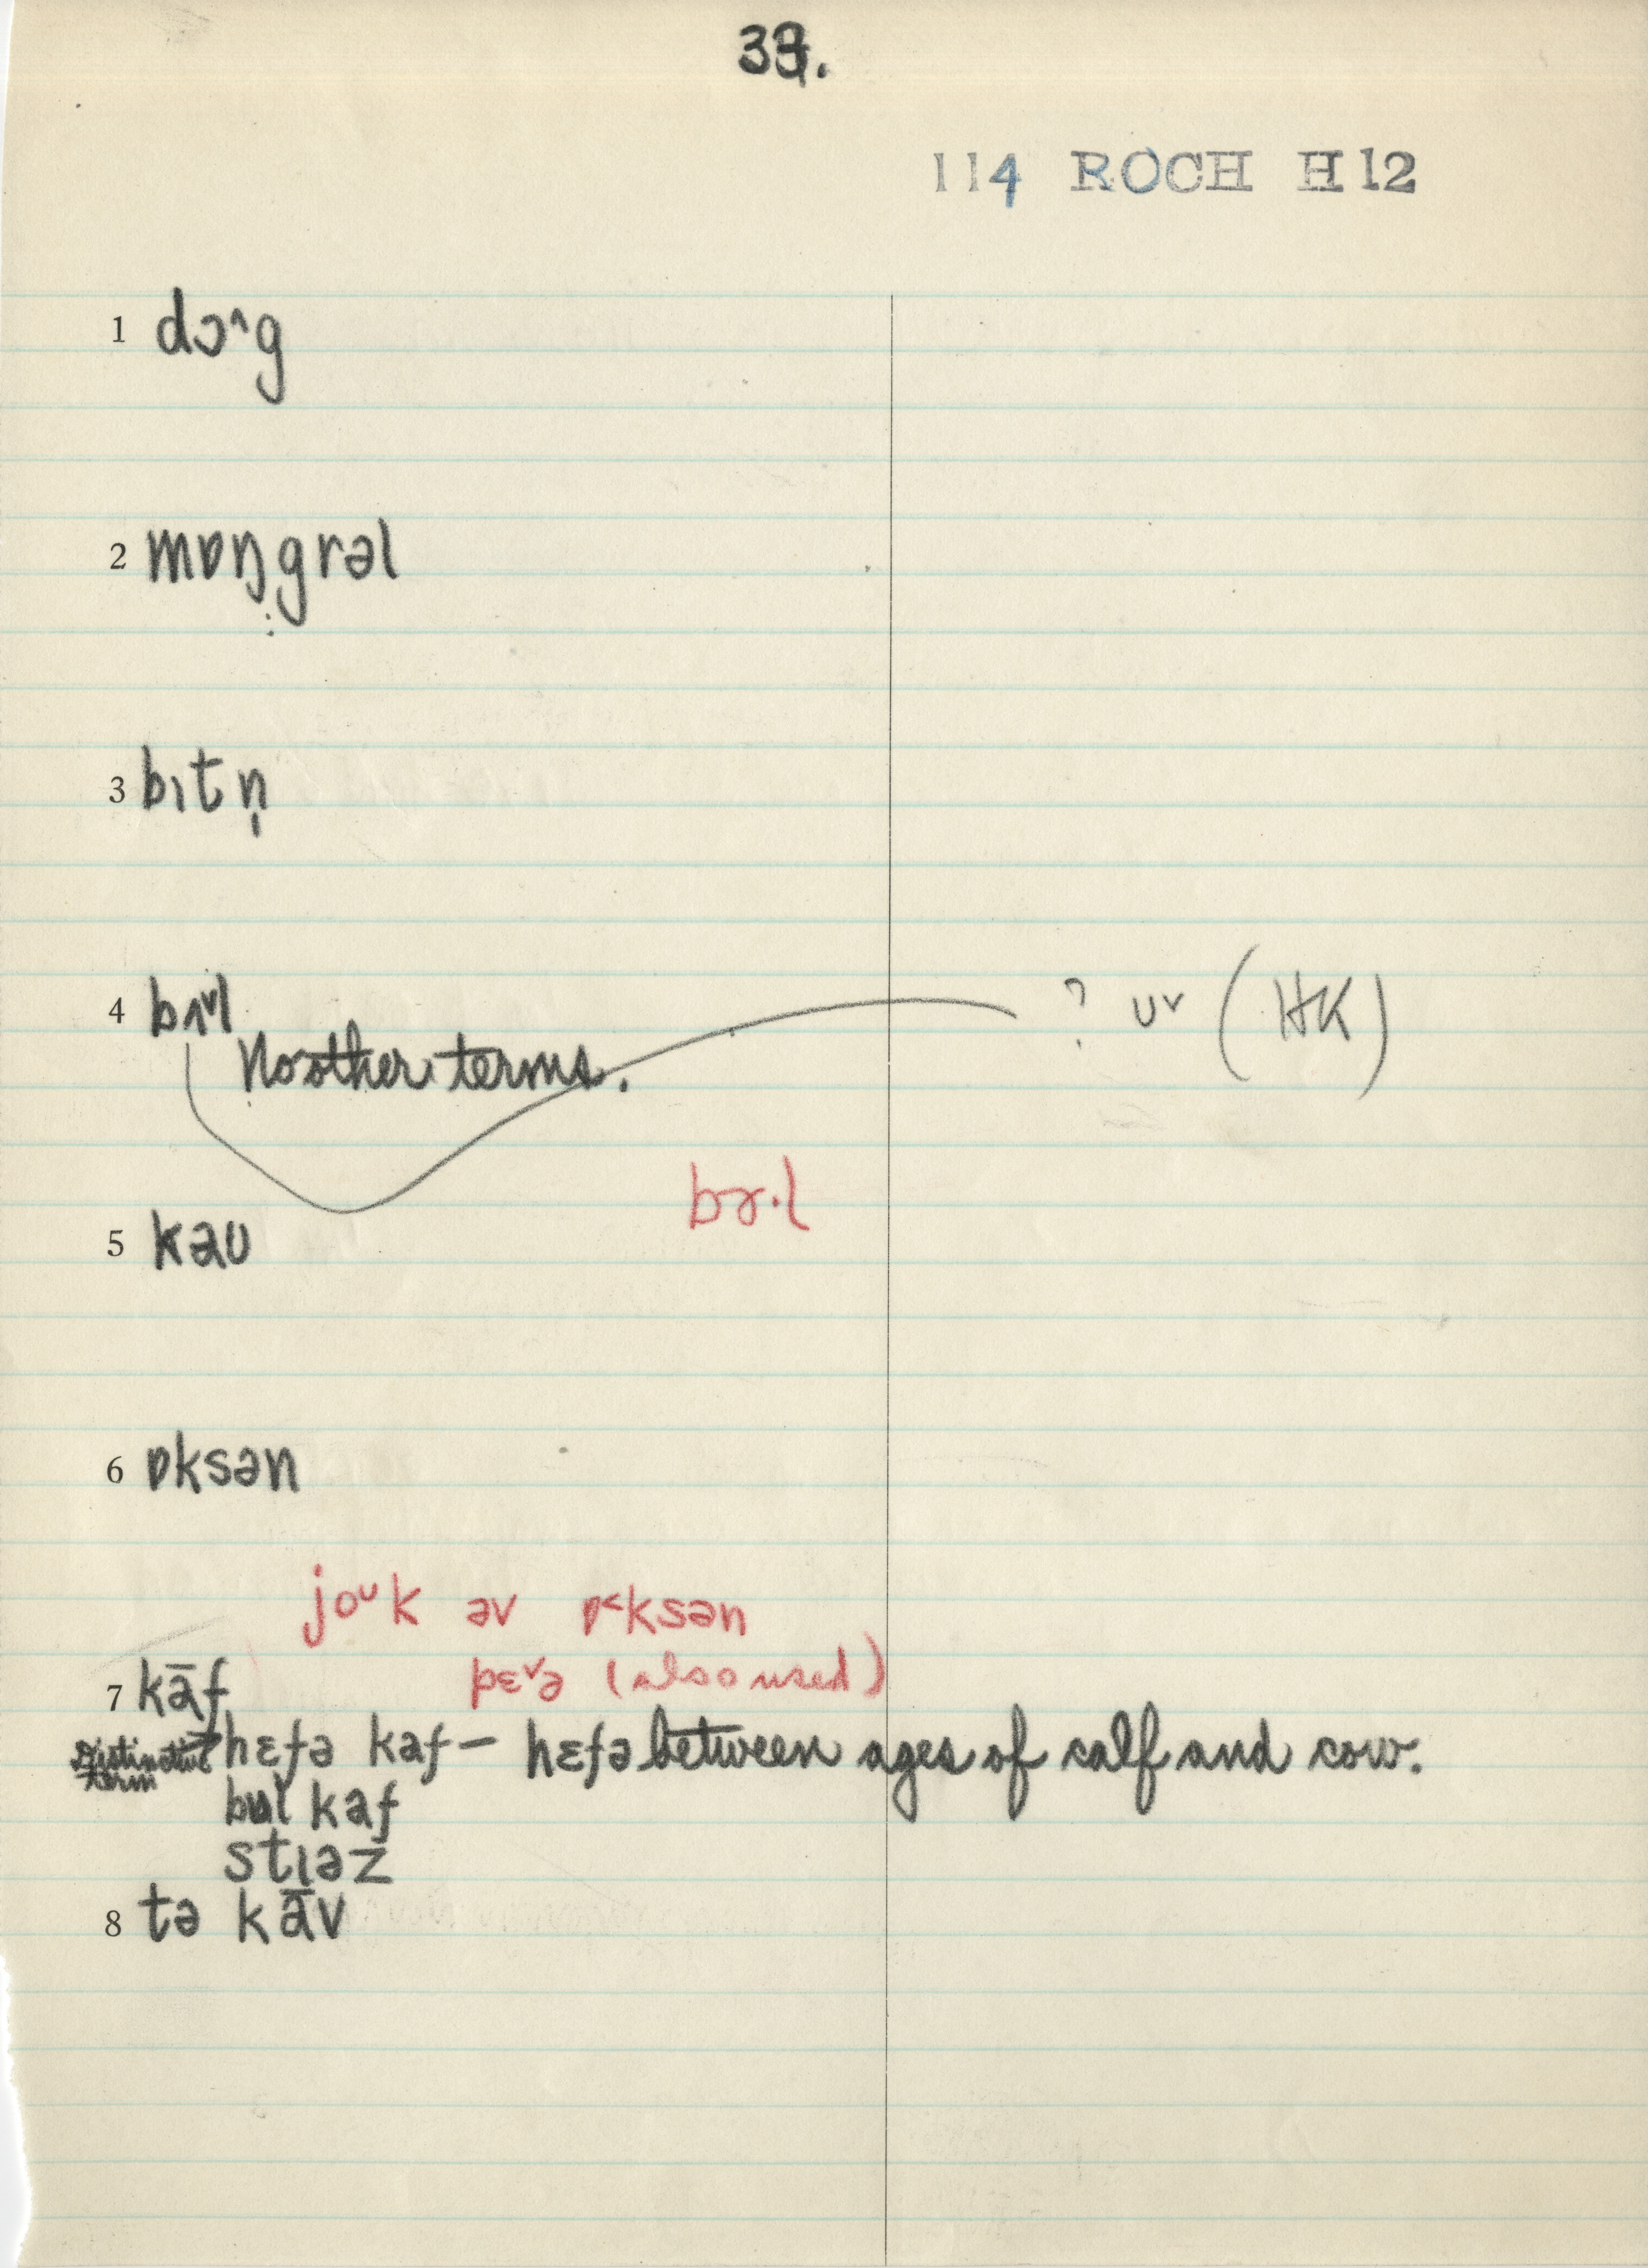 33.
114 ROCH H12
1 dɔ˄g
2 mɒŋgrəl
3 bɪtn̩
4 ? ᴜ˅ (HK)
No other terms.
bɤ·l
5 kaʊ
6 ɒksən
joᴜk əv ɒ˂ksən
7 kāf pɛ˅ə (also used)
Distinctive term hɛfə kaf – hɛfə between ages of calf and cow.
bʊl kaf
stɪəz
8 tə kāv